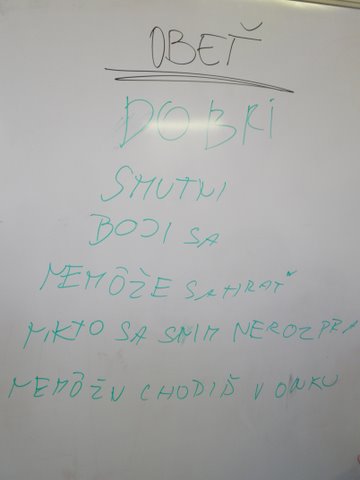 OBEŤ
DOBRI
SMUTNI
BOJI SA
NEMÔŽE SA HRAŤ
NIKTO SA SNIM NEROZPRA
NEMÔŽU CHODIŤ VONKU